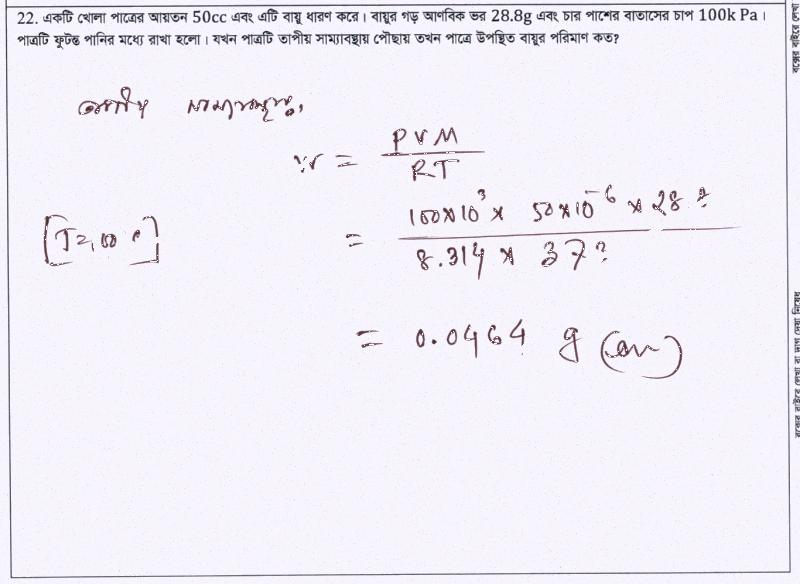 22. একটি খোলা পাত্রের আয়তন 50cc এবং এটি বায়ু ধারণ করে। বায়ুর গড় আণবিক ভর 28.8g এবং চার পাশের বাতাসের চাপ 100k Pa।
পাত্রটি ফুটন্ত পানির মধ্যে রাখা হলো। যখন পাত্রটি তাপীয় সাম্যাবস্থায় পৌছায় তখন পাত্রে উপস্থিত বায়ুর পরিমাণ কত?
তাপীয় সাম্যাবস্থায়,
w = PVM
RT
= 100×10³ × 50×10⁻⁶ × 28
8.314 × 37
= 0.0464 g